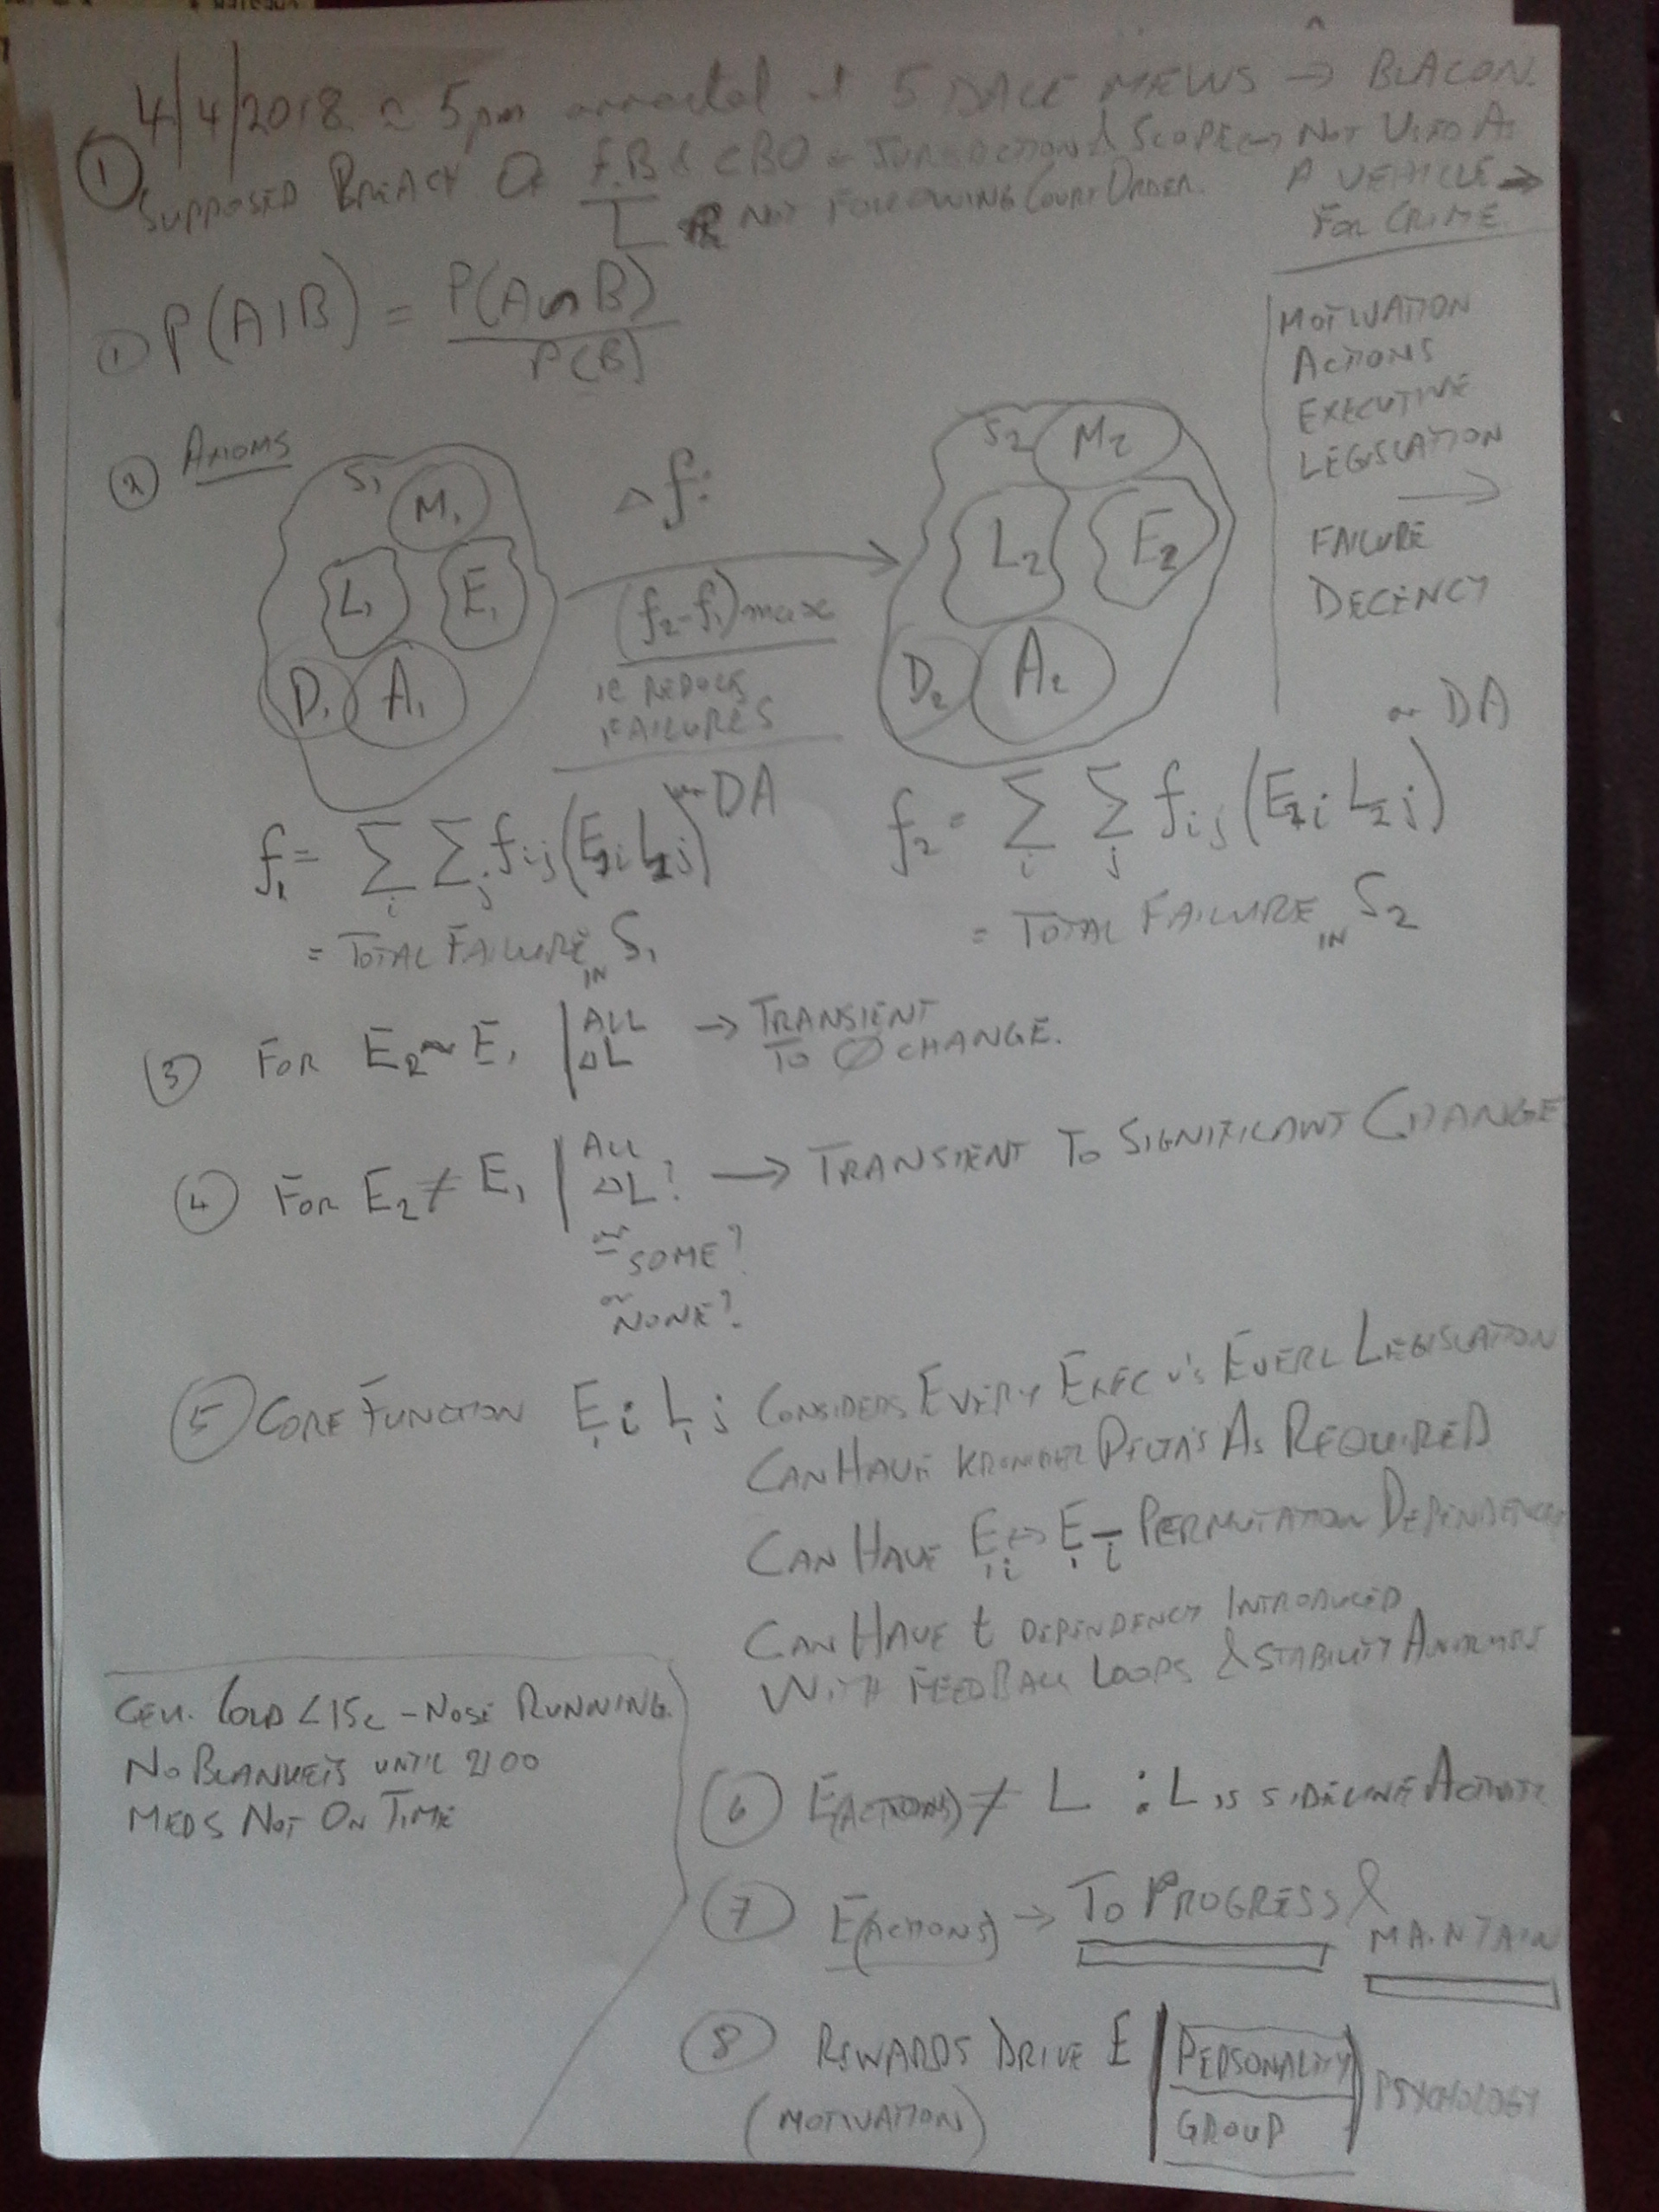 4/4/2018 ≈ 5pm arrested at 5 DALE MEWS → BLACON.
① SUPPOSED BREACH OF F.B & CBO - JURISDICTION & SCOPE → NOT USED AS
L NOT FOLLOWING COURT ORDER. A VEHICLE →
FOR CRIME.
① P(A|B) = P(A∩B) / P(B)
MOTIVATION
ACTIONS
EXECUTIVE
LEGISLATION
→
FAILURE
DECENCY
② AXIOMS
S₁ M₁ L₁ E₁ D₁ A₁
Δf:
(f₂-f₁)max
ie REDUCE
FAILURES
S₂ M₂ L₂ E₂ D₂ A₂
f₁ = Σi Σj fij (E₁i L₁j) DA
= TOTAL FAILURE IN S₁
f₂ = Σi Σj fij (E₂i L₂j) DA
= TOTAL FAILURE IN S₂
③ FOR E₂ ~ E₁ | ALL ΔL → TRANSIENT
TO Ø CHANGE.
④ FOR E₂ ≠ E₁ | ALL ΔL? → TRANSIENT TO SIGNIFICANT CHANGE
or SOME?
or NONE?
⑤ CORE FUNCTION E₁i L₁j CONSIDERS EVERY EXEC v's EVERL LEGISLATION
CAN HAVE KRONEKER DELTA'S AS REQUIRED
CAN HAVE E₁i ↔ E₁i̅ PERMUTATION DEPENDENCY
CAN HAVE t DEPENDENCY INTRODUCED
WITH FEEDBACK LOOPS & STABILITY
CELL COLD <15c - NOSE RUNNING.
NO BLANKETS UNTIL 2100
MEDS NOT ON TIME
⑥ E(ACTIONS) ≠ L : L IS SIDELINE ACTIVITY
⑦ E(ACTIONS) → TO PROGRESS &
MAINTAIN
⑧ REWARDS DRIVE E | PERSONALITY | PSYCHOLOGY
(MOTIVATION) GROUP